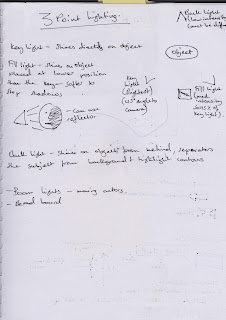 3 Point Lighting.
Back light
(low intensity)
(must be
Key light - Shines directly on object
object
Fill light - shines on object
placed at lower position
than the key - softer to
stop shadows
Key
light
(brightest)
(45° right to
camera)
Fill light
(med
intensity
key light)
- Can use
reflector
Back light - shines on object from behind, seperates
the subject from background + highlight contours
- Boom lights - moving actors.
- Bead board